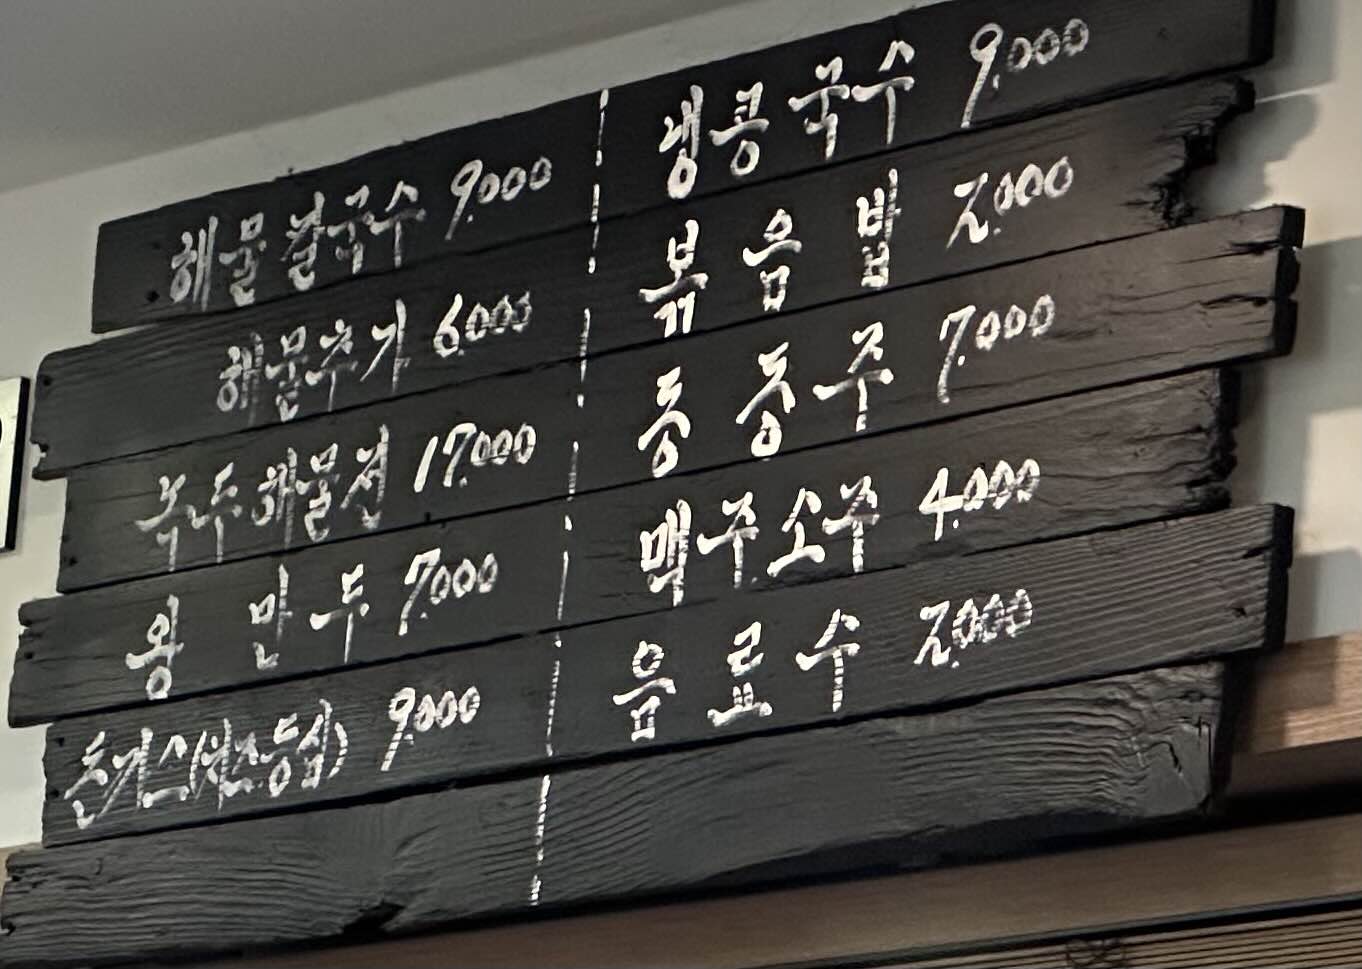 해물칼국수 9,000
해물추가 6,000
녹두해물전 17,000
왕 만 두 7,000
돈까스(치즈등심) 9,000
냉콩국수 9,000
볶 음 밥 2,000
동 동 주 7,000
맥주소주 4,000
음 료 수 2,000